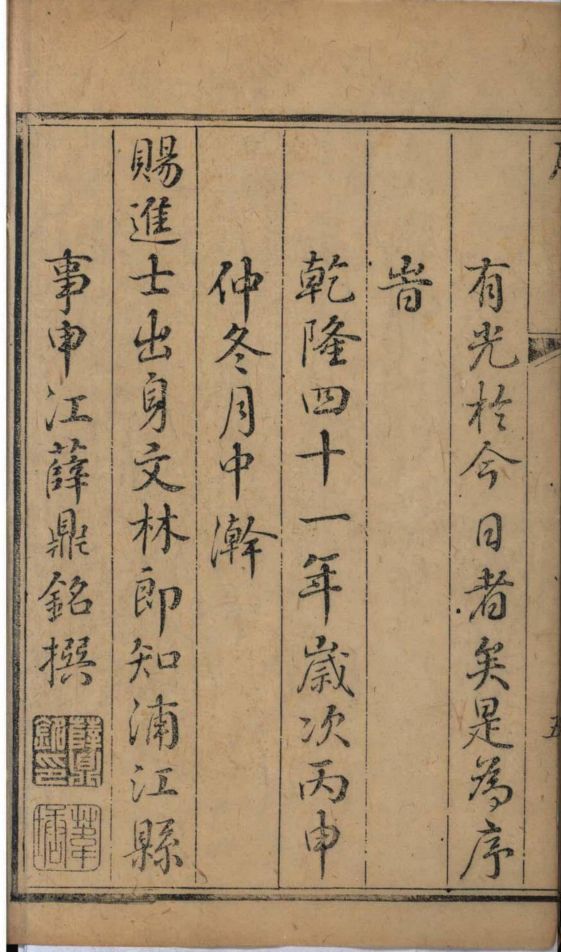 有光於今日者矣是為序
旹
乾隆四十一年歲次丙申
仲冬月中澣
賜進士出身文林郎知浦江縣
事申江薛鼎銘撰
薛鼎銘印